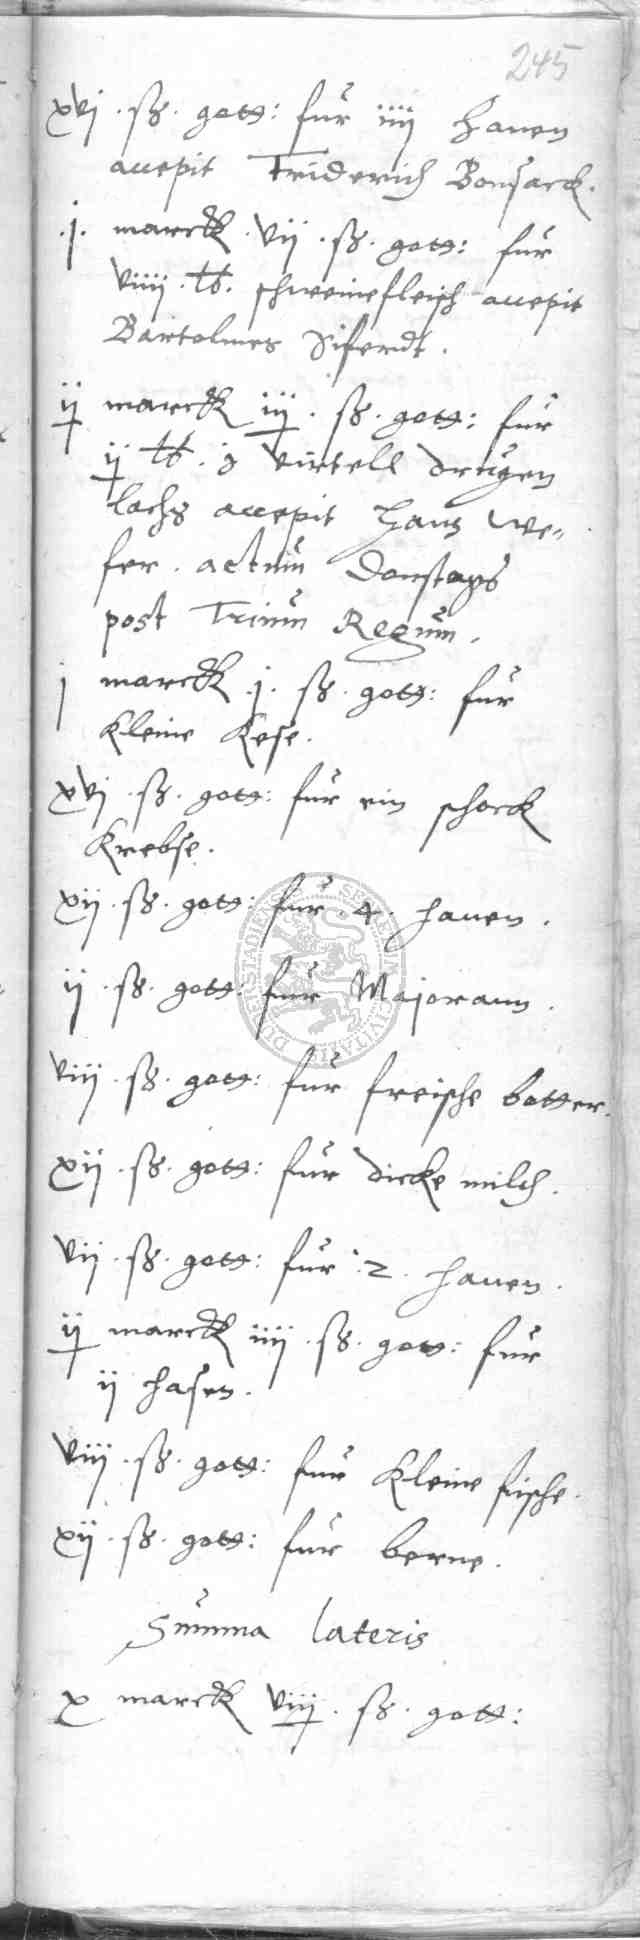 245
xvj . ß. gott: fur iiij hanen
accepit Friderich Bonsack.
.j. marck vij . ß. gott: fur
viiij . lb. schweinefleisch accepit
Bartolmes Siferdt.
ij marck iij . ß. gott: fur
ij lb. j virtell drugen
lachs accepit Hans We=
fer . actum Donstags
post Trium Regum.
j marck .j. ß. gott: fur
kleine kese.
xvj . ß. gott: fur ein schock
krebse.
xij . ß. gott: fur . 4 . hanen .
ij . ß. gott: fur Majorann .
viij . ß. gott: fur freische botter.
xij . ß. gott: fur dicke milch .
vij . ß. gott: fur . 2 . hanen .
ij marck iiij . ß. gott: fur
ij hasen .
viij . ß. gott: fur kleine fische .
xij . ß. gott: fur berne .
Summa lateris
x marck viij . ß. gott: